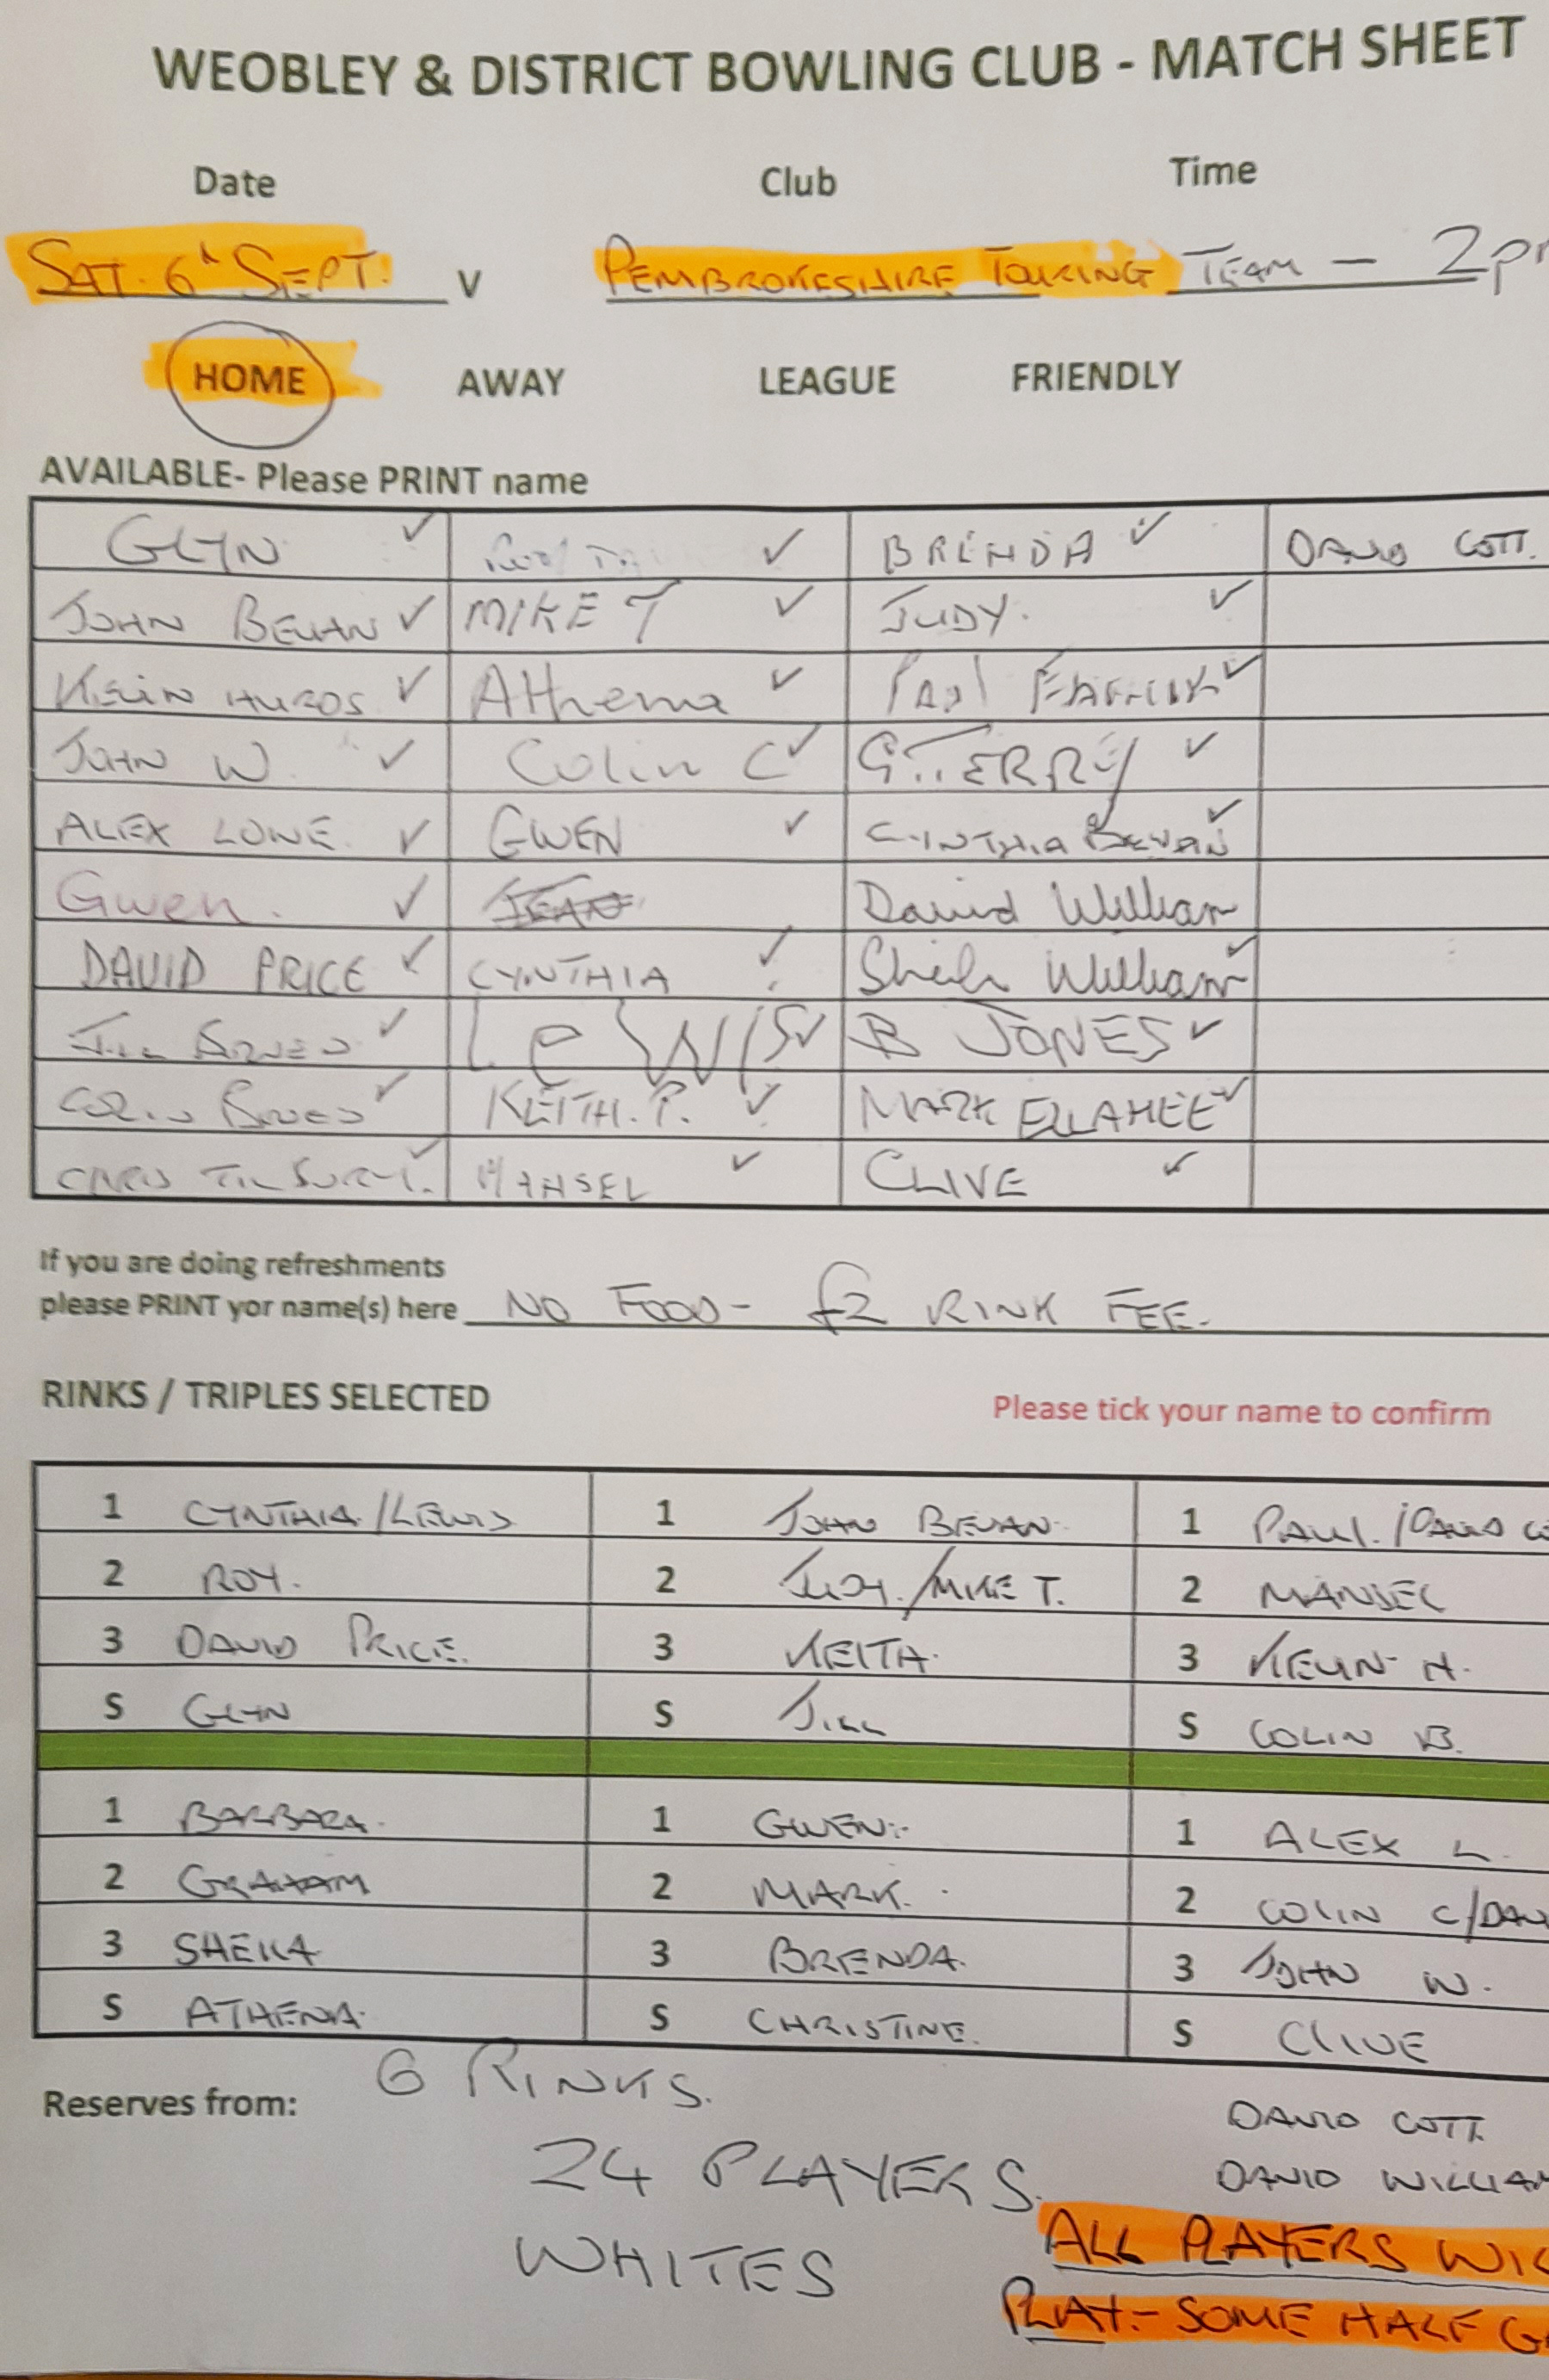 WEOBLEY & DISTRICT BOWLING CLUB - MATCH SHEET
Date Club Time
SAT. 6th SEPT. V PEMBROKESHIRE TOURING TEAM - 2p
HOME AWAY LEAGUE FRIENDLY
AVAILABLE- Please PRINT name
GLYN ✓ ✓ BRENDA ✓ DAVID COTT.
JOHN BEVAN ✓ MIKE T ✓ JUDY. ✓
KEVIN ✓ Athena ✓ Paul ✓
JOHN W. ✓ Colin C ✓ G.TERRY ✓
ALEX LOWE. ✓ GWEN ✓ CYNTHIA BEVAN ✓
Gwen. ✓ JEAN David William
DAVID PRICE ✓ CYNTHIA ✓ Sheila William ✓
JILL ✓ LeWIS ✓ B JONES ✓
COLIN ✓ KEITH. P. ✓ MARK ELLAHEE ✓
✓ MANSEL ✓ CLIVE ✓
If you are doing refreshments
please PRINT yor name(s) here NO FOOD - £2 RINK FEE.
RINKS / TRIPLES SELECTED Please tick your name to confirm
1 CYNTHIA/LEWIS 1 JOHN BEVAN. 1 PAUL./DAVID CO
2 ROY. 2 JUDY./MIKE T. 2 MANSEL
3 DAVID PRICE. 3 KEITH. 3 KEVIN H.
S GLYN S JILL S COLIN B.
1 BARBARA. 1 GWEN. 1 ALEX L.
2 GRAHAM 2 MARK. 2 COLIN C/DAV
3 SHEILA 3 BRENDA. 3 JOHN W.
S ATHENA. S CHRISTINE. S CLIVE
Reserves from: 6 RINKS.
DAVID COTT.
24 PLAYERS.
DAVID WILLIAM
WHITES
ALL PLAYERS WIL
PLAY.- SOME HALF GA